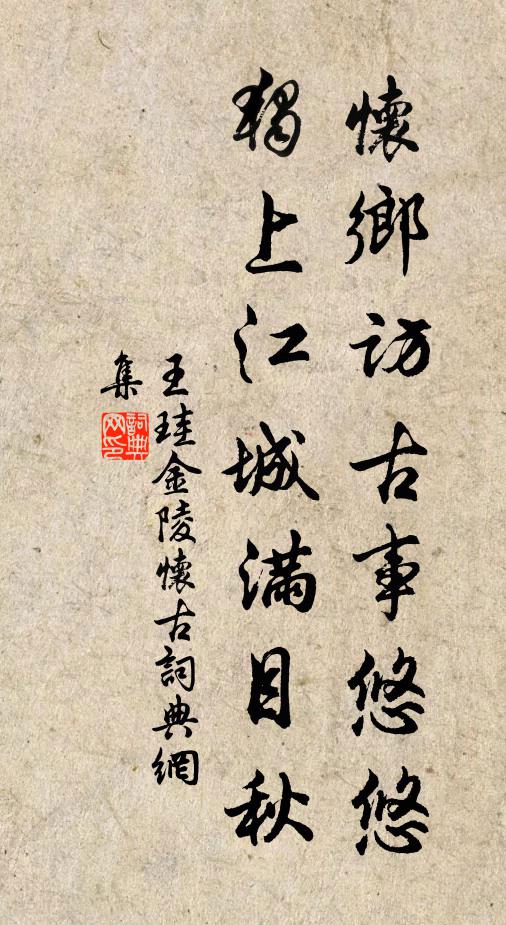 懷鄉訪古事悠悠
獨上江城滿目秋
王珪金陵懷古詞典網
集
詞典
网印